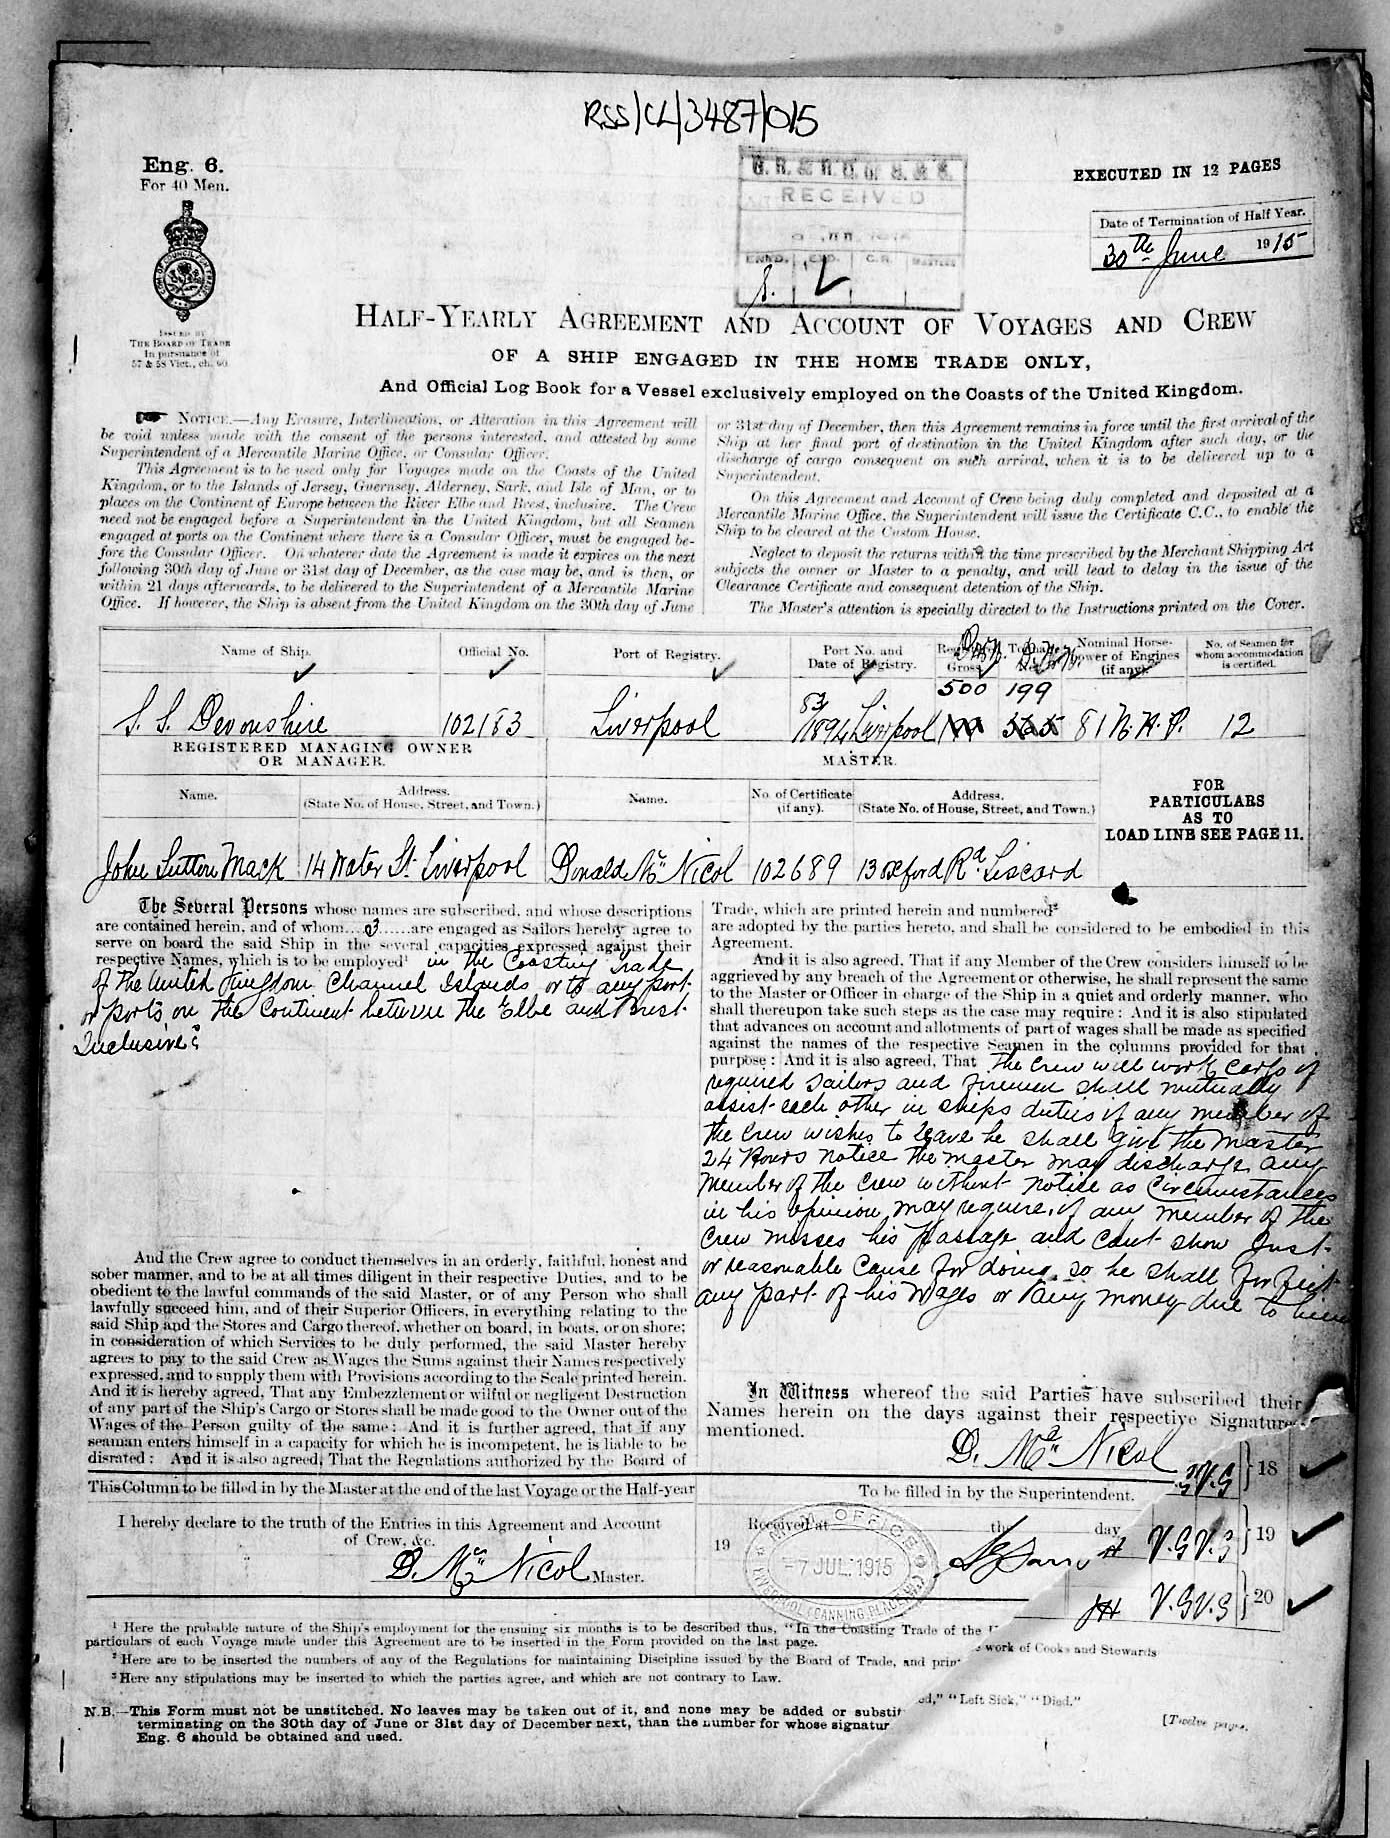 RSS/CL/3487/015
Eng. 6.
For 40 Men.
ISSUED BY
THE BOARD OF TRADE
In pursuance of
57 & 58 Vict., ch. 60
RECEIVED
ENRD.
C.R.
EXECUTED IN 12 PAGES
Date of Termination of Half Year.
30th June 1915
HALF-YEARLY AGREEMENT AND ACCOUNT OF VOYAGES AND CREW
OF A SHIP ENGAGED IN THE HOME TRADE ONLY,
And Official Log Book for a Vessel exclusively employed on the Coasts of the United Kingdom.
NOTICE.—Any Erasure, Interlineation, or Alteration in this Agreement will
be void unless made with the consent of the persons interested, and attested by some
Superintendent of a Mercantile Marine Office, or Consular Officer.
This Agreement is to be used only for Voyages made on the Coasts of the United
Kingdom, or to the Islands of Jersey, Guernsey, Alderney, Sark, and Isle of Man, or to
places on the Continent of Europe between the River Elbe and Brest, inclusive. The Crew
need not be engaged before a Superintendent in the United Kingdom, but all Seamen
engaged at ports on the Continent where there is a Consular Officer, must be engaged be-
fore the Consular Officer. On whatever date the Agreement is made it expires on the next
following 30th day of June or 31st day of December, as the case may be, and is then, or
within 21 days afterwards, to be delivered to the Superintendent of a Mercantile Marine
Office. If however, the Ship is absent from the United Kingdom on the 30th day of June
or 31st day of December, then this Agreement remains in force until the first arrival of the
Ship at her final port of destination in the United Kingdom after such day, or the
discharge of cargo consequent on such arrival, when it is to be delivered up to a
Superintendent.
On this Agreement and Account of Crew being duly completed and deposited at a
Mercantile Marine Office, the Superintendent will issue the Certificate C.C., to enable the
Ship to be cleared at the Custom House.
Neglect to deposit the returns within the time prescribed by the Merchant Shipping Act
subjects the owner or Master to a penalty, and will lead to delay in the issue of the
Clearance Certificate and consequent detention of the Ship.
The Master's attention is specially directed to the Instructions printed on the Cover.
Name of Ship.
Official No.
Port of Registry.
Port No. and
Date of Registry.
Gross
Nominal Horse-
power of Engines
(if any).
No. of Seamen for
whom accommodation
is certified.
500 199
S. S. Devonshire 102183 Liverpool 83/1894 Liverpool 81 N.H.P. 12
REGISTERED MANAGING OWNER
OR MANAGER.
MASTER.
Name.
Address.
(State No. of House, Street, and Town.)
Name.
No. of Certificate
(if any).
Address.
(State No. of House, Street, and Town.)
FOR
PARTICULARS
AS TO
LOAD LINE SEE PAGE 11.
John Sutton Mack 14 Water St. Liverpool Donald Mc Nicol 102689 13 Oxford Rd Liscard
The Several Persons whose names are subscribed, and whose descriptions
are contained herein, and of whom 3 are engaged as Sailors hereby agree to
serve on board the said Ship in the several capacities expressed against their
respective Names, which is to be employed¹ in the Coasting Trade
of the United Kingdom Channel Islands or to any port
or ports on the Continent between the Elbe and Brest
Inclusive
And the Crew agree to conduct themselves in an orderly, faithful, honest and
sober manner, and to be at all times diligent in their respective Duties, and to be
obedient to the lawful commands of the said Master, or of any Person who shall
lawfully succeed him, and of their Superior Officers, in everything relating to the
said Ship and the Stores and Cargo thereof, whether on board, in boats, or on shore;
in consideration of which Services to be duly performed, the said Master hereby
agrees to pay to the said Crew as Wages the Sums against their Names respectively
expressed, and to supply them with Provisions according to the Scale printed herein.
And it is hereby agreed, That any Embezzlement or wilful or negligent Destruction
of any part of the Ship's Cargo or Stores shall be made good to the Owner out of the
Wages of the Person guilty of the same: And it is further agreed, that if any
seaman enters himself in a capacity for which he is incompetent, he is liable to be
disrated: And it is also agreed, That the Regulations authorized by the Board of
Trade, which are printed herein and numbered²
are adopted by the parties hereto, and shall be considered to be embodied in this
Agreement.
And it is also agreed, That if any Member of the Crew considers himself to be
aggrieved by any breach of the Agreement or otherwise, he shall represent the same
to the Master or Officer in charge of the Ship in a quiet and orderly manner, who
shall thereupon take such steps as the case may require: And it is also stipulated
that advances on account and allotments of part of wages shall be made as specified
against the names of the respective Seamen in the columns provided for that
purpose: And it is also agreed, That The crew will work cargo if
required sailors and firemen shall mutually
assist each other in ships duties if any member of
the crew wishes to leave he shall give the Master
24 Hours notice the master may discharge any
Member of the crew without notice as Circumstances
in his opinion may require, if any member of the
crew misses his passage and cant show Just
or reasonable cause for doing so he shall forfeit
any part of his Wages or any money due to him
In Witness whereof the said Parties have subscribed their
Names herein on the days against their respective Signatures
mentioned.
D. Mc Nicol
V.G } 18
This Column to be filled in by the Master at the end of the last Voyage or the Half-year
To be filled in by the Superintendent.
I hereby declare to the truth of the Entries in this Agreement and Account
of Crew, &c.
D. Mc Nicol Master.
Received at the day
19
M.M. OFFICE
7 JUL. 1915
LIVERPOOL CANNING PLACE
V.G V.G } 19
V.G V.G } 20
¹ Here the probable nature of the Ship's employment for the ensuing six months is to be described thus, "In the Coasting Trade of the
particulars of each Voyage made under this Agreement are to be inserted in the Form provided on the last page.
work of Cooks and Stewards
² Here are to be inserted the numbers of any of the Regulations for maintaining Discipline issued by the Board of Trade, and
³ Here any stipulations may be inserted to which the parties agree, and which are not contrary to Law.
ed," "Left Sick," "Died."
N.B.—This Form must not be unstitched. No leaves may be taken out of it, and none may be added or substit
terminating on the 30th day of June or 31st day of December next, than the number for whose signatur
Eng. 6 should be obtained and used.
[Twelve pages.